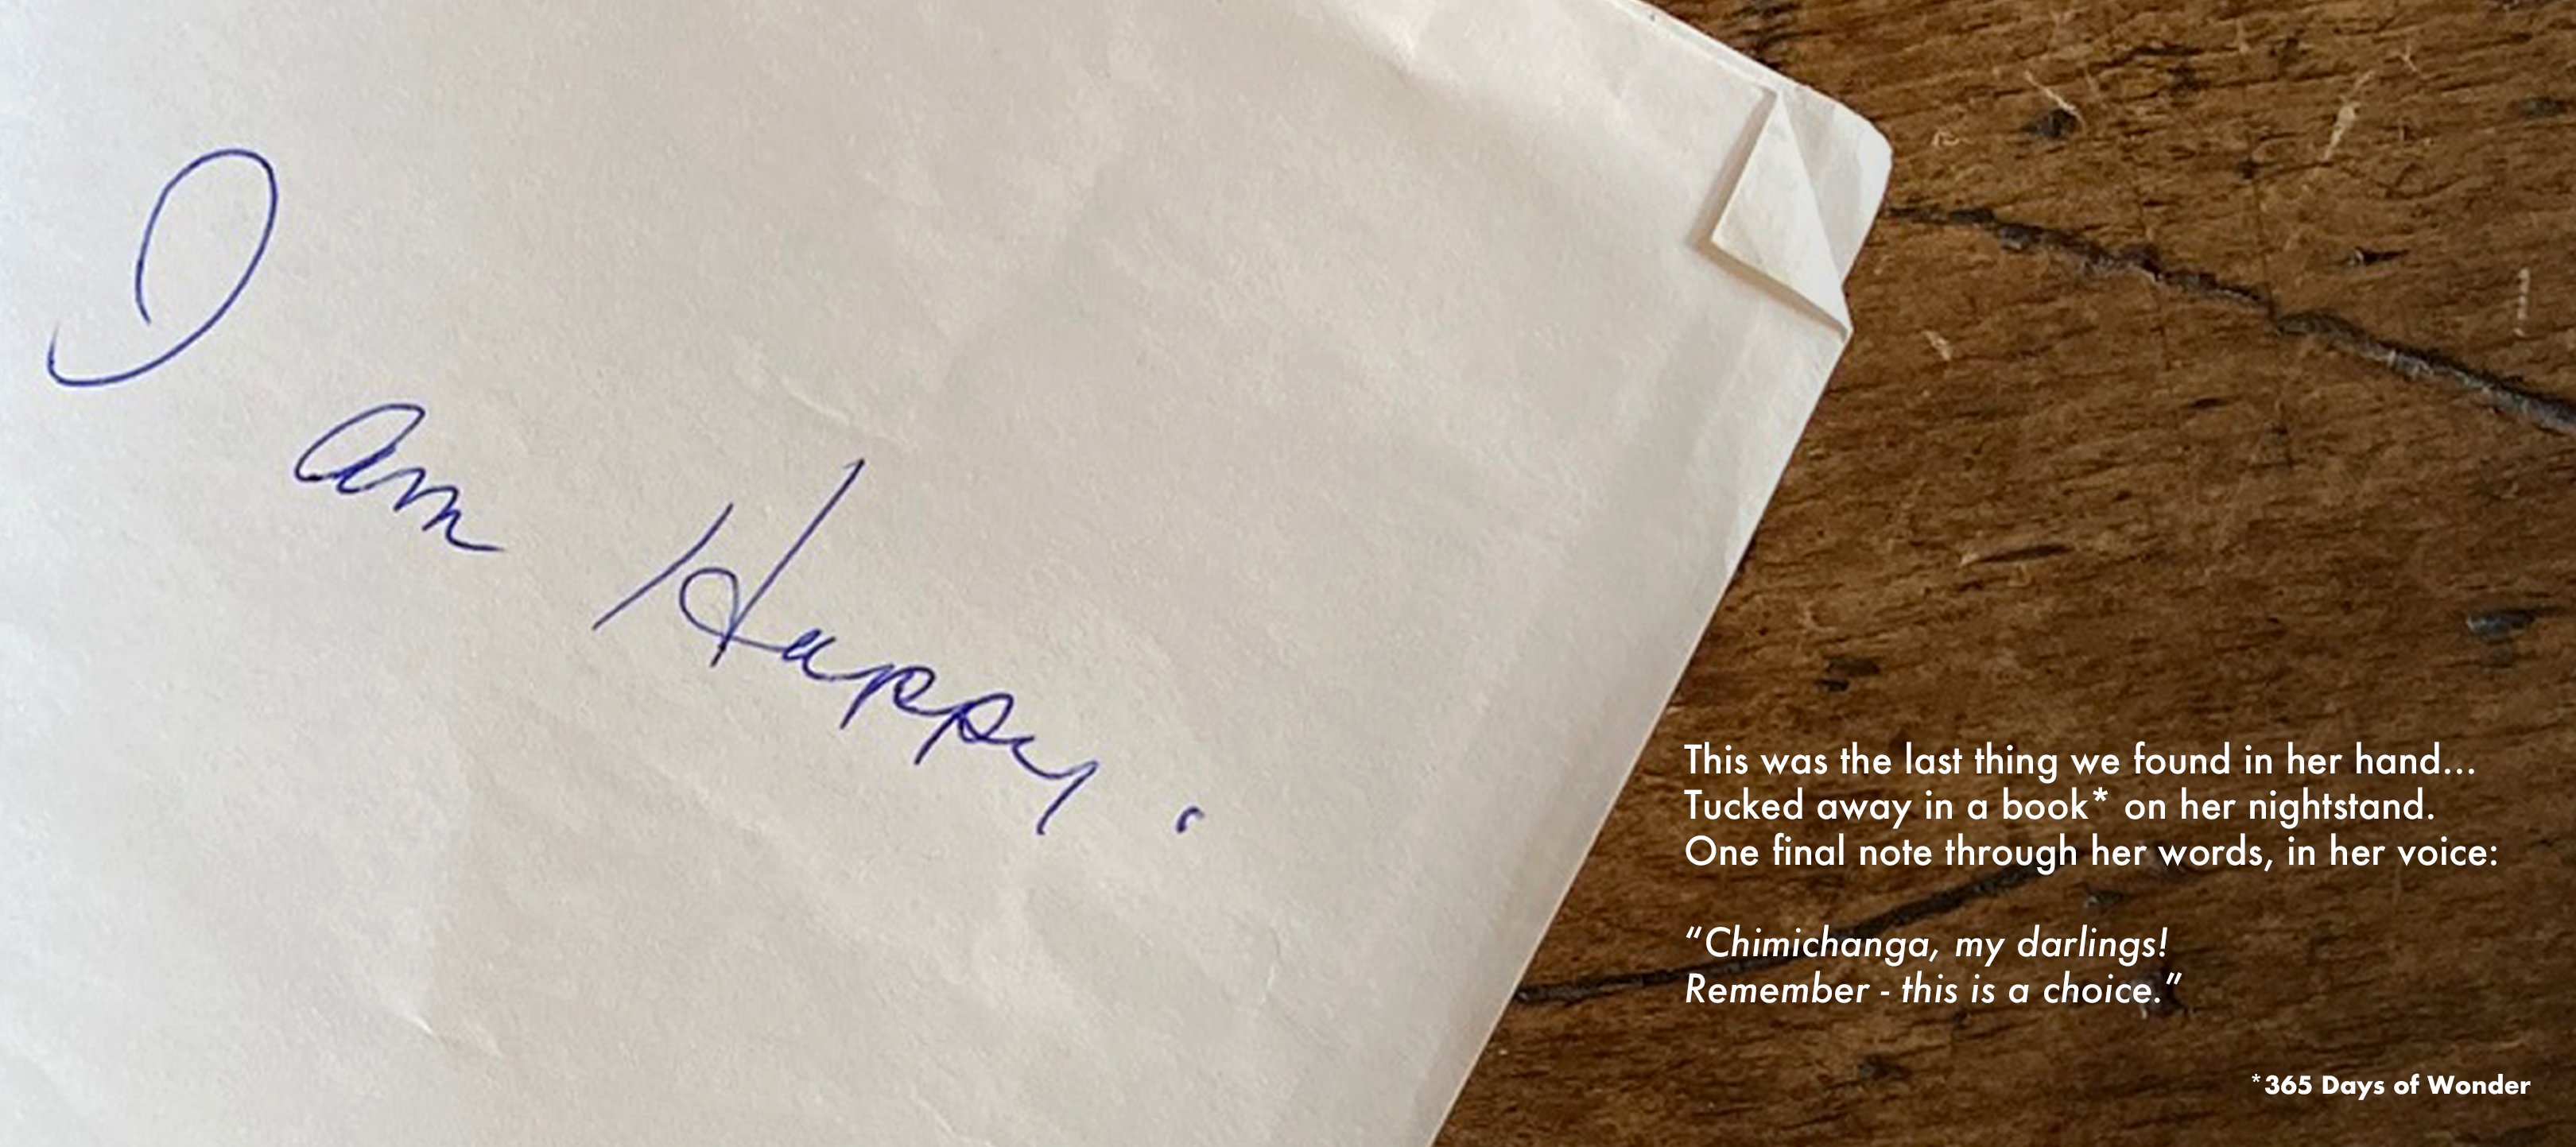 I am Happy.
This was the last thing we found in her hand...
Tucked away in a book* on her nightstand.
One final note through her words, in her voice:
“Chimichanga, my darlings!
Remember - this is a choice.”
*365 Days of Wonder